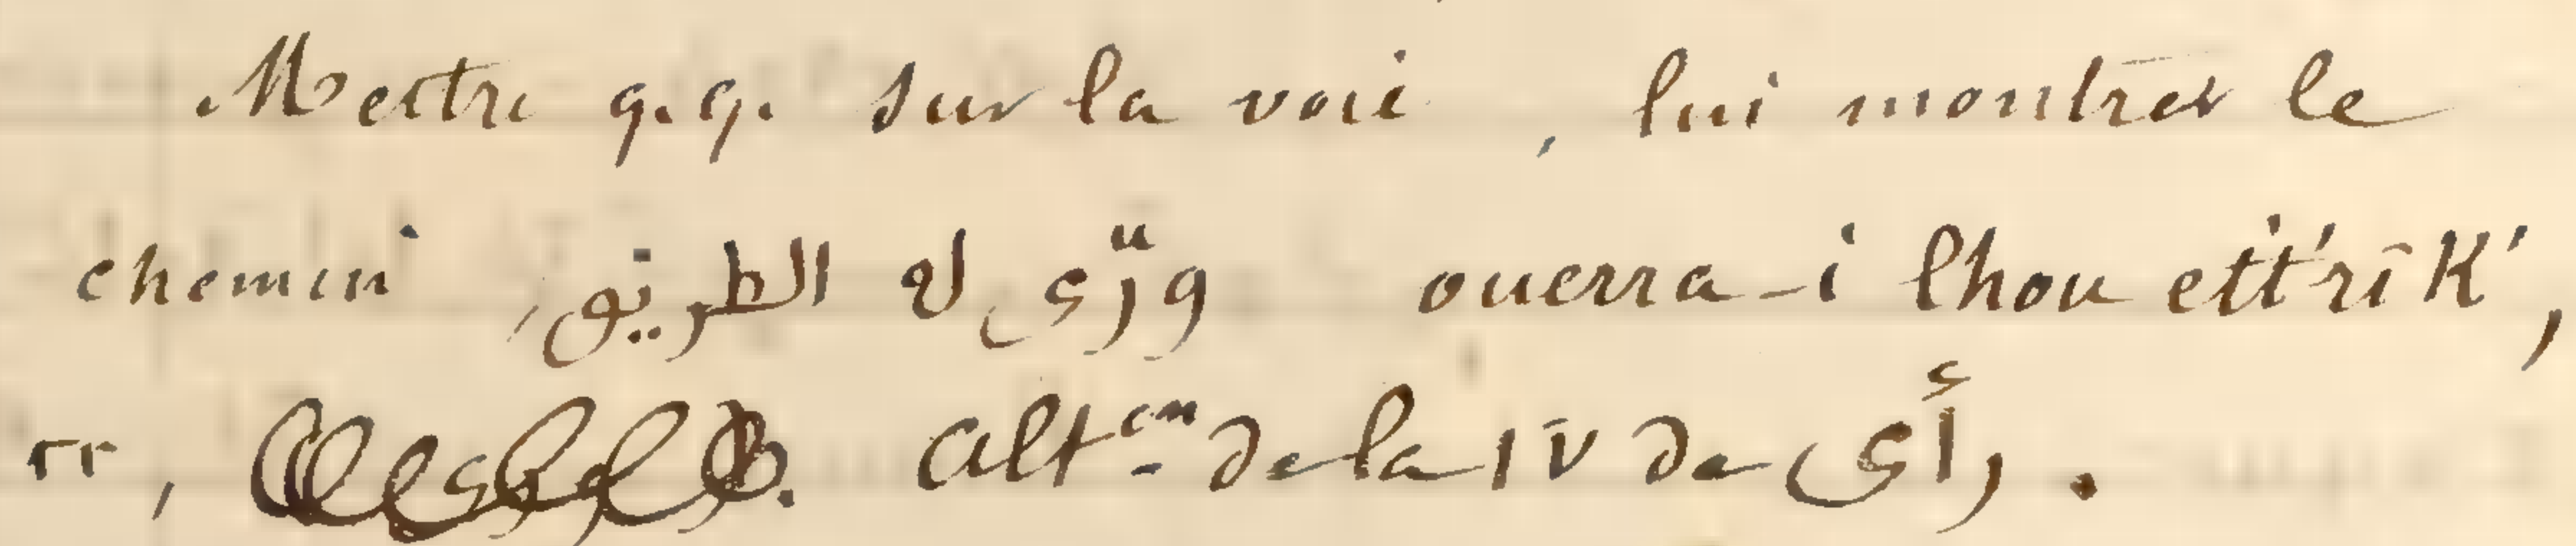 Mettre q.q. sur la voie, lui montrer le
chemin ورّى له الطريق, ouerra-i lhou ett'rîk',
rr, Altᵒⁿ de la IV de رأى.